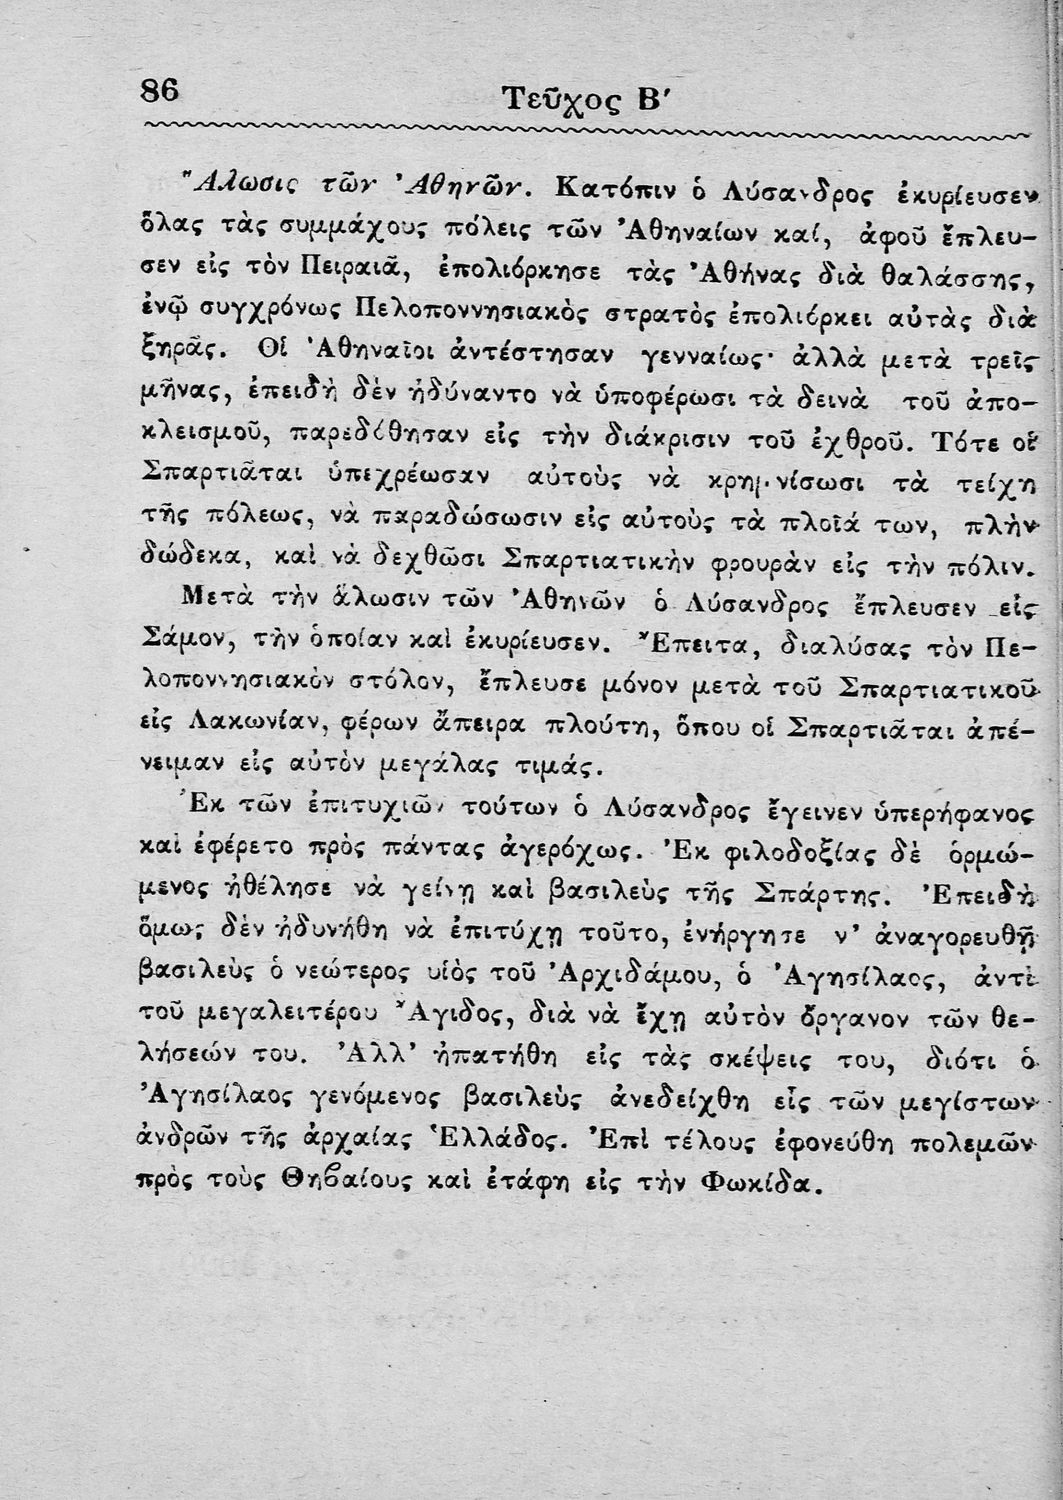 86
Τεῦχος Β′
Ἅλωσις τῶν Ἀθηνῶν. Κατόπιν ὁ Λύσανδρος ἐκυρίευσεν
ὅλας τὰς συμμάχους πόλεις τῶν Ἀθηναίων καί, ἀφοῦ ἔπλευ-
σεν εἰς τὸν Πειραιᾶ, ἐπολιόρκησε τὰς Ἀθήνας διὰ θαλάσσης,
ἐνῷ συγχρόνως Πελοποννησιακὸς στρατὸς ἐπολιόρκει αὐτὰς διὰ
ξηρᾶς. Οἱ Ἀθηναῖοι ἀντέστησαν γενναίως· ἀλλὰ μετὰ τρεῖς
μῆνας, ἐπειδὴ δὲν ἠδύναντο νὰ ὑποφέρωσι τὰ δεινὰ τοῦ ἀπο-
κλεισμοῦ, παρεδόθησαν εἰς τὴν διάκρισιν τοῦ ἐχθροῦ. Τότε οἱ
Σπαρτιᾶται ὑπεχρέωσαν αὐτοὺς νὰ κρημνίσωσι τὰ τείχη
τῆς πόλεως, νὰ παραδώσωσιν εἰς αὐτοὺς τὰ πλοῖά των, πλὴν
δώδεκα, καὶ νὰ δεχθῶσι Σπαρτιατικὴν φρουρὰν εἰς τὴν πόλιν.
Μετὰ τὴν ἅλωσιν τῶν Ἀθηνῶν ὁ Λύσανδρος ἔπλευσεν εἰς
Σάμον, τὴν ὁποίαν καὶ ἐκυρίευσεν. Ἔπειτα, διαλύσας τὸν Πε-
λοποννησιακὸν στόλον, ἔπλευσε μόνον μετὰ τοῦ Σπαρτιατικοῦ
εἰς Λακωνίαν, φέρων ἄπειρα πλούτη, ὅπου οἱ Σπαρτιᾶται ἀπέ-
νειμαν εἰς αὐτὸν μεγάλας τιμάς.
Ἐκ τῶν ἐπιτυχιῶν τούτων ὁ Λύσανδρος ἔγεινεν ὑπερήφανος
καὶ ἐφέρετο πρὸς πάντας ἀγερόχως. Ἐκ φιλοδοξίας δὲ ὁρμώ-
μενος ἠθέλησε νὰ γείνῃ καὶ βασιλεὺς τῆς Σπάρτης. Ἐπειδὴ
ὅμως δὲν ἠδυνήθη νὰ ἐπιτύχῃ τοῦτο, ἐνήργησε ν’ ἀναγορευθῇ
βασιλεὺς ὁ νεώτερος υἱὸς τοῦ Ἀρχιδάμου, ὁ Ἀγησίλαος, ἀντὶ
τοῦ μεγαλειτέρου Ἄγιδος, διὰ νὰ ἔχῃ αὐτὸν ὄργανον τῶν θε-
λήσεών του. Ἀλλ’ ἠπατήθη εἰς τὰς σκέψεις του, διότι ὁ
Ἀγησίλαος γενόμενος βασιλεὺς ἀνεδείχθη εἷς τῶν μεγίστων
ἀνδρῶν τῆς ἀρχαίας Ἑλλάδος. Ἐπὶ τέλους ἐφονεύθη πολεμῶν
πρὸς τοὺς Θηβαίους καὶ ἐτάφη εἰς τὴν Φωκίδα.